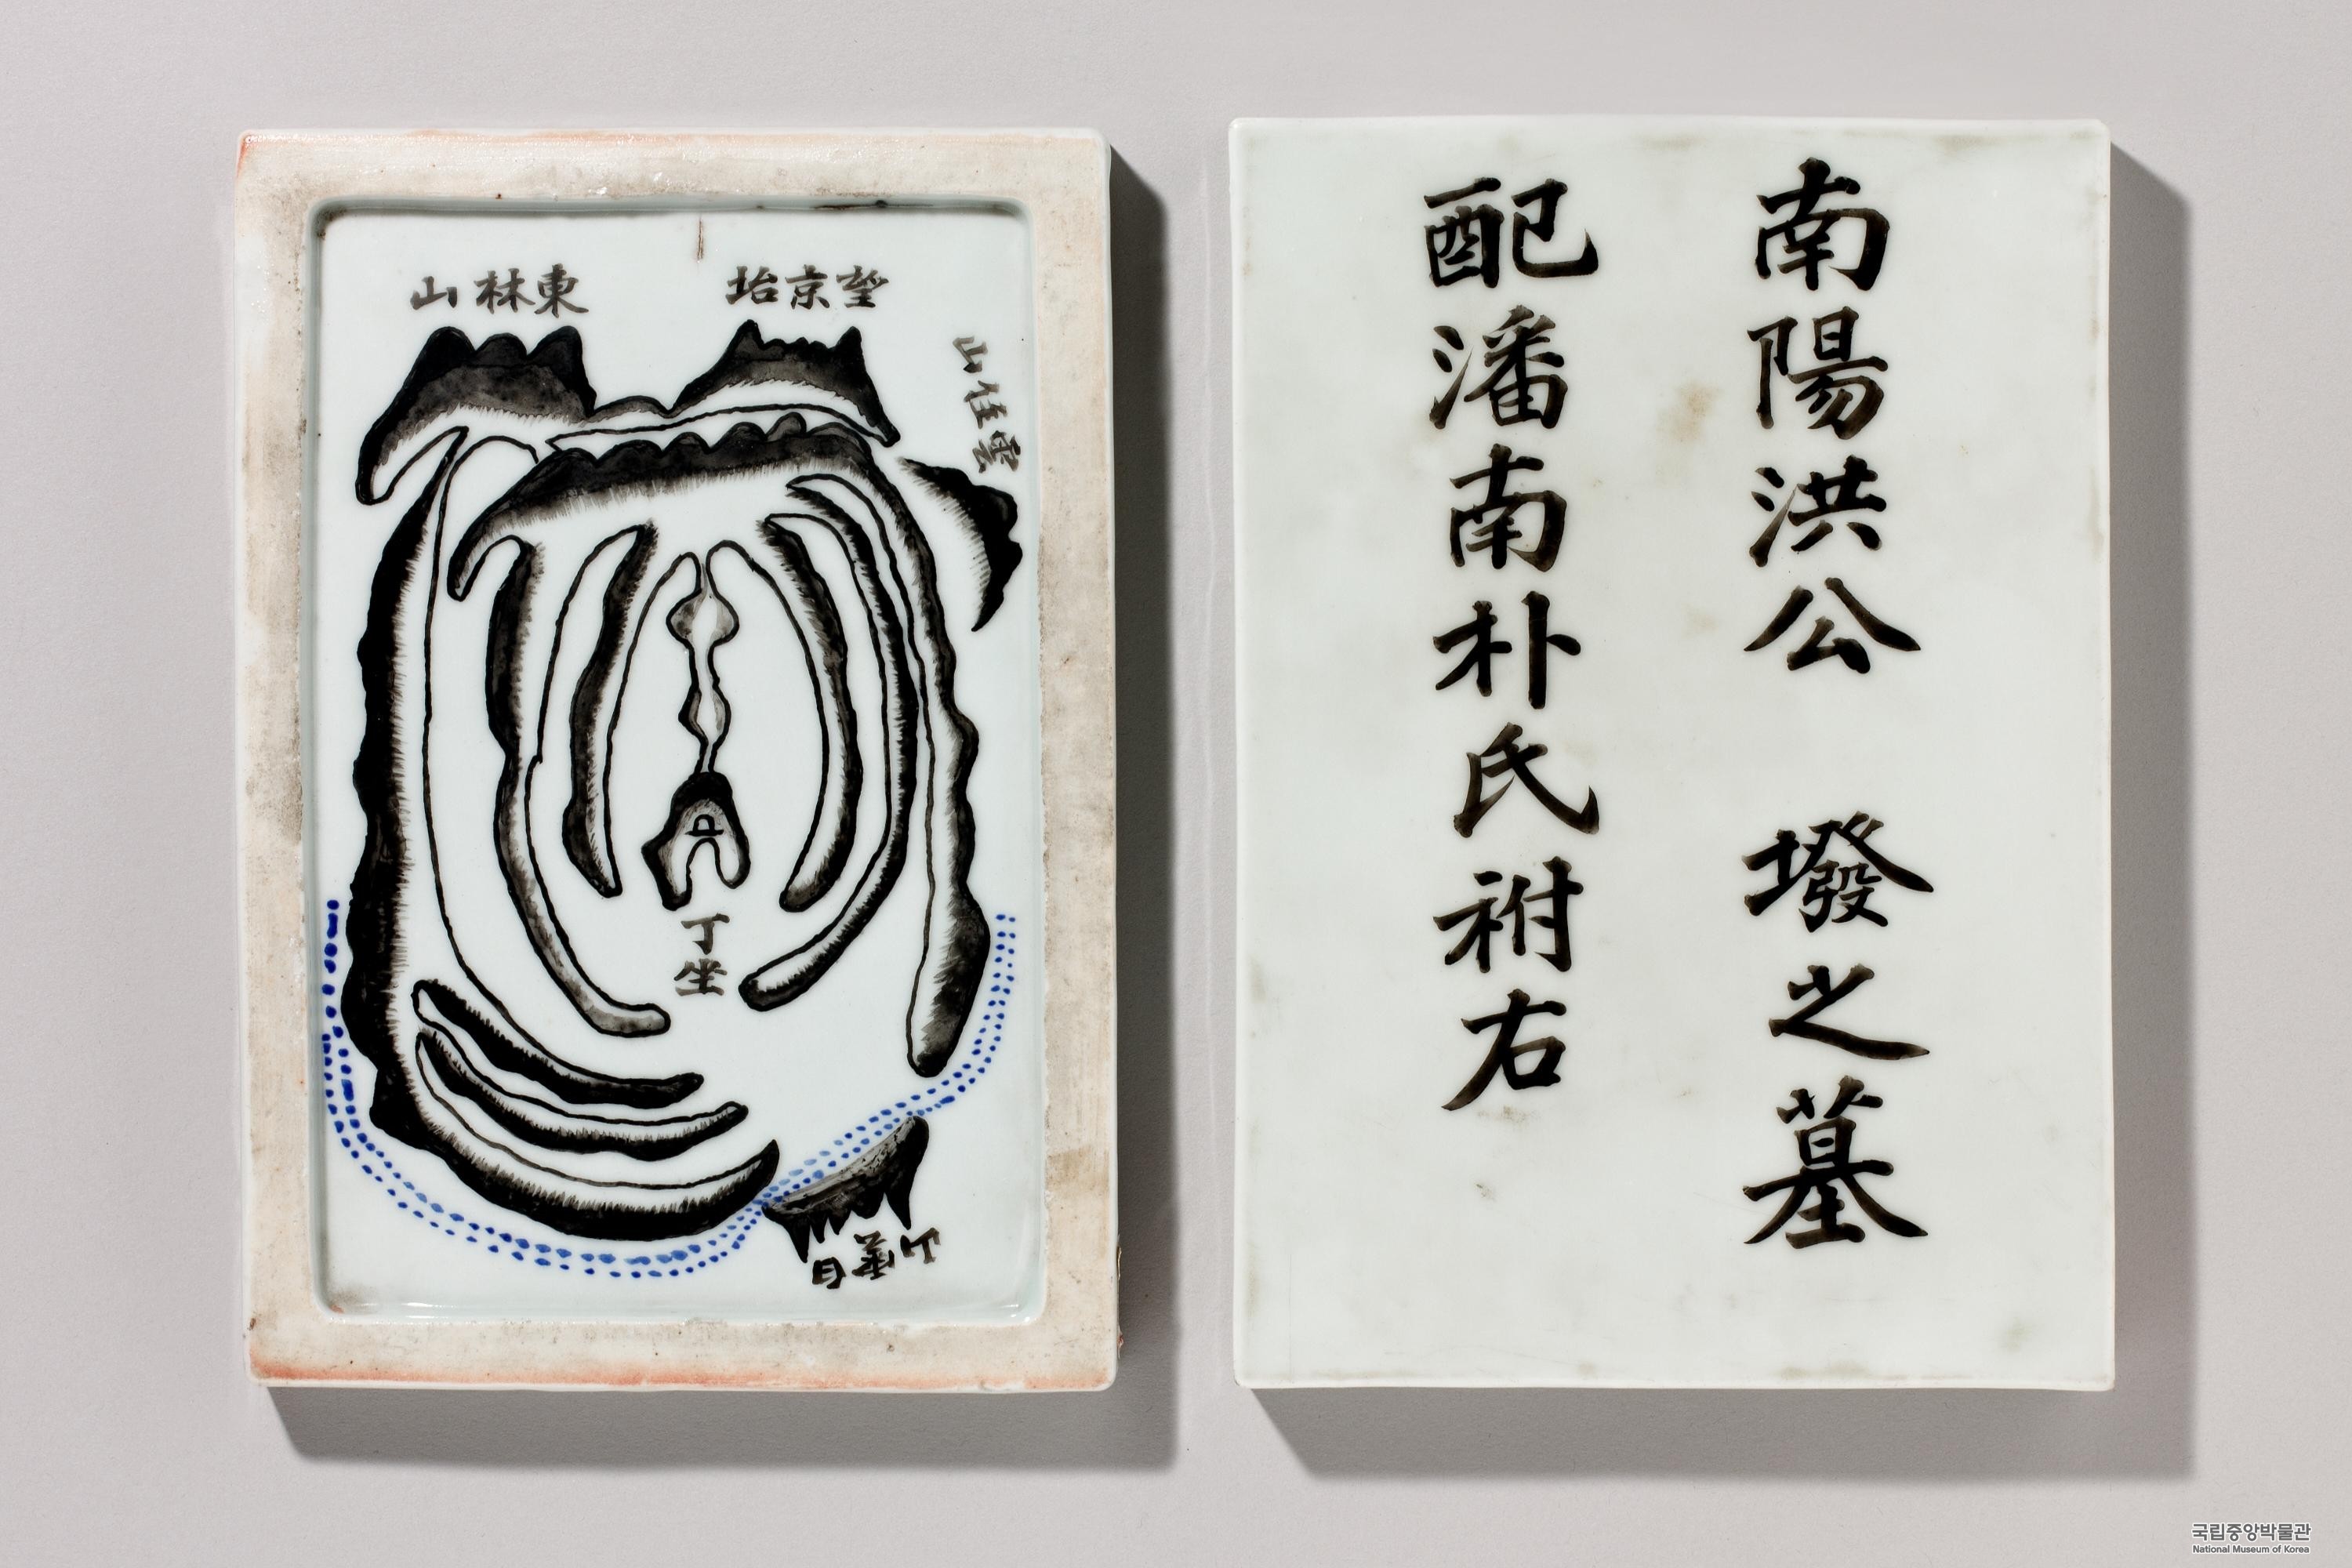 望京坮
東林山
雲住山
丁坐
白雲山
南陽洪公 墢之墓
配潘南朴氏祔右
국립중앙박물관
National Museum of Korea